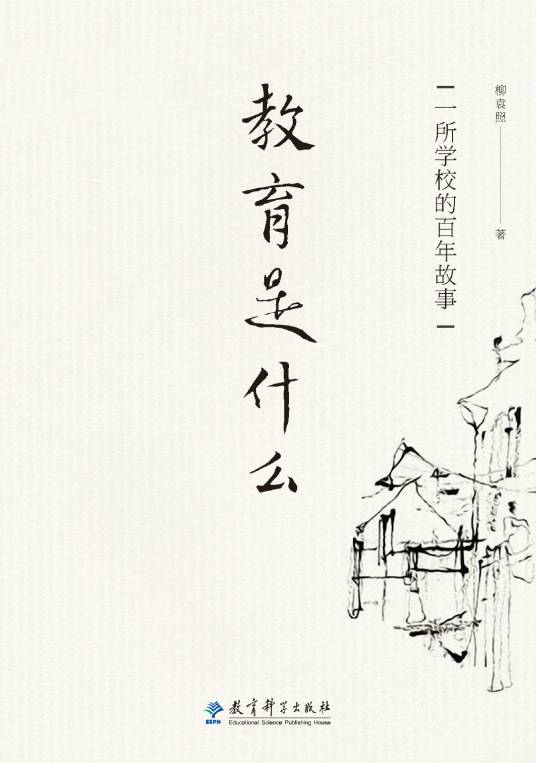 教育是什么
一所学校的百年故事
柳袁照 著
教育科学出版社
EEPH
Educational Science Publishing House